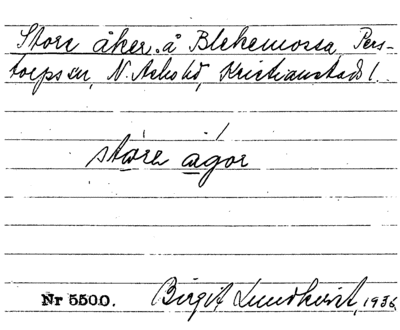 Store åker. å Blekemossa, Pers-
torps sn, N. Åsbo hd, Kristianstads l.
störe ågor
Nr 5500. Birgit Lundkvist, 1936